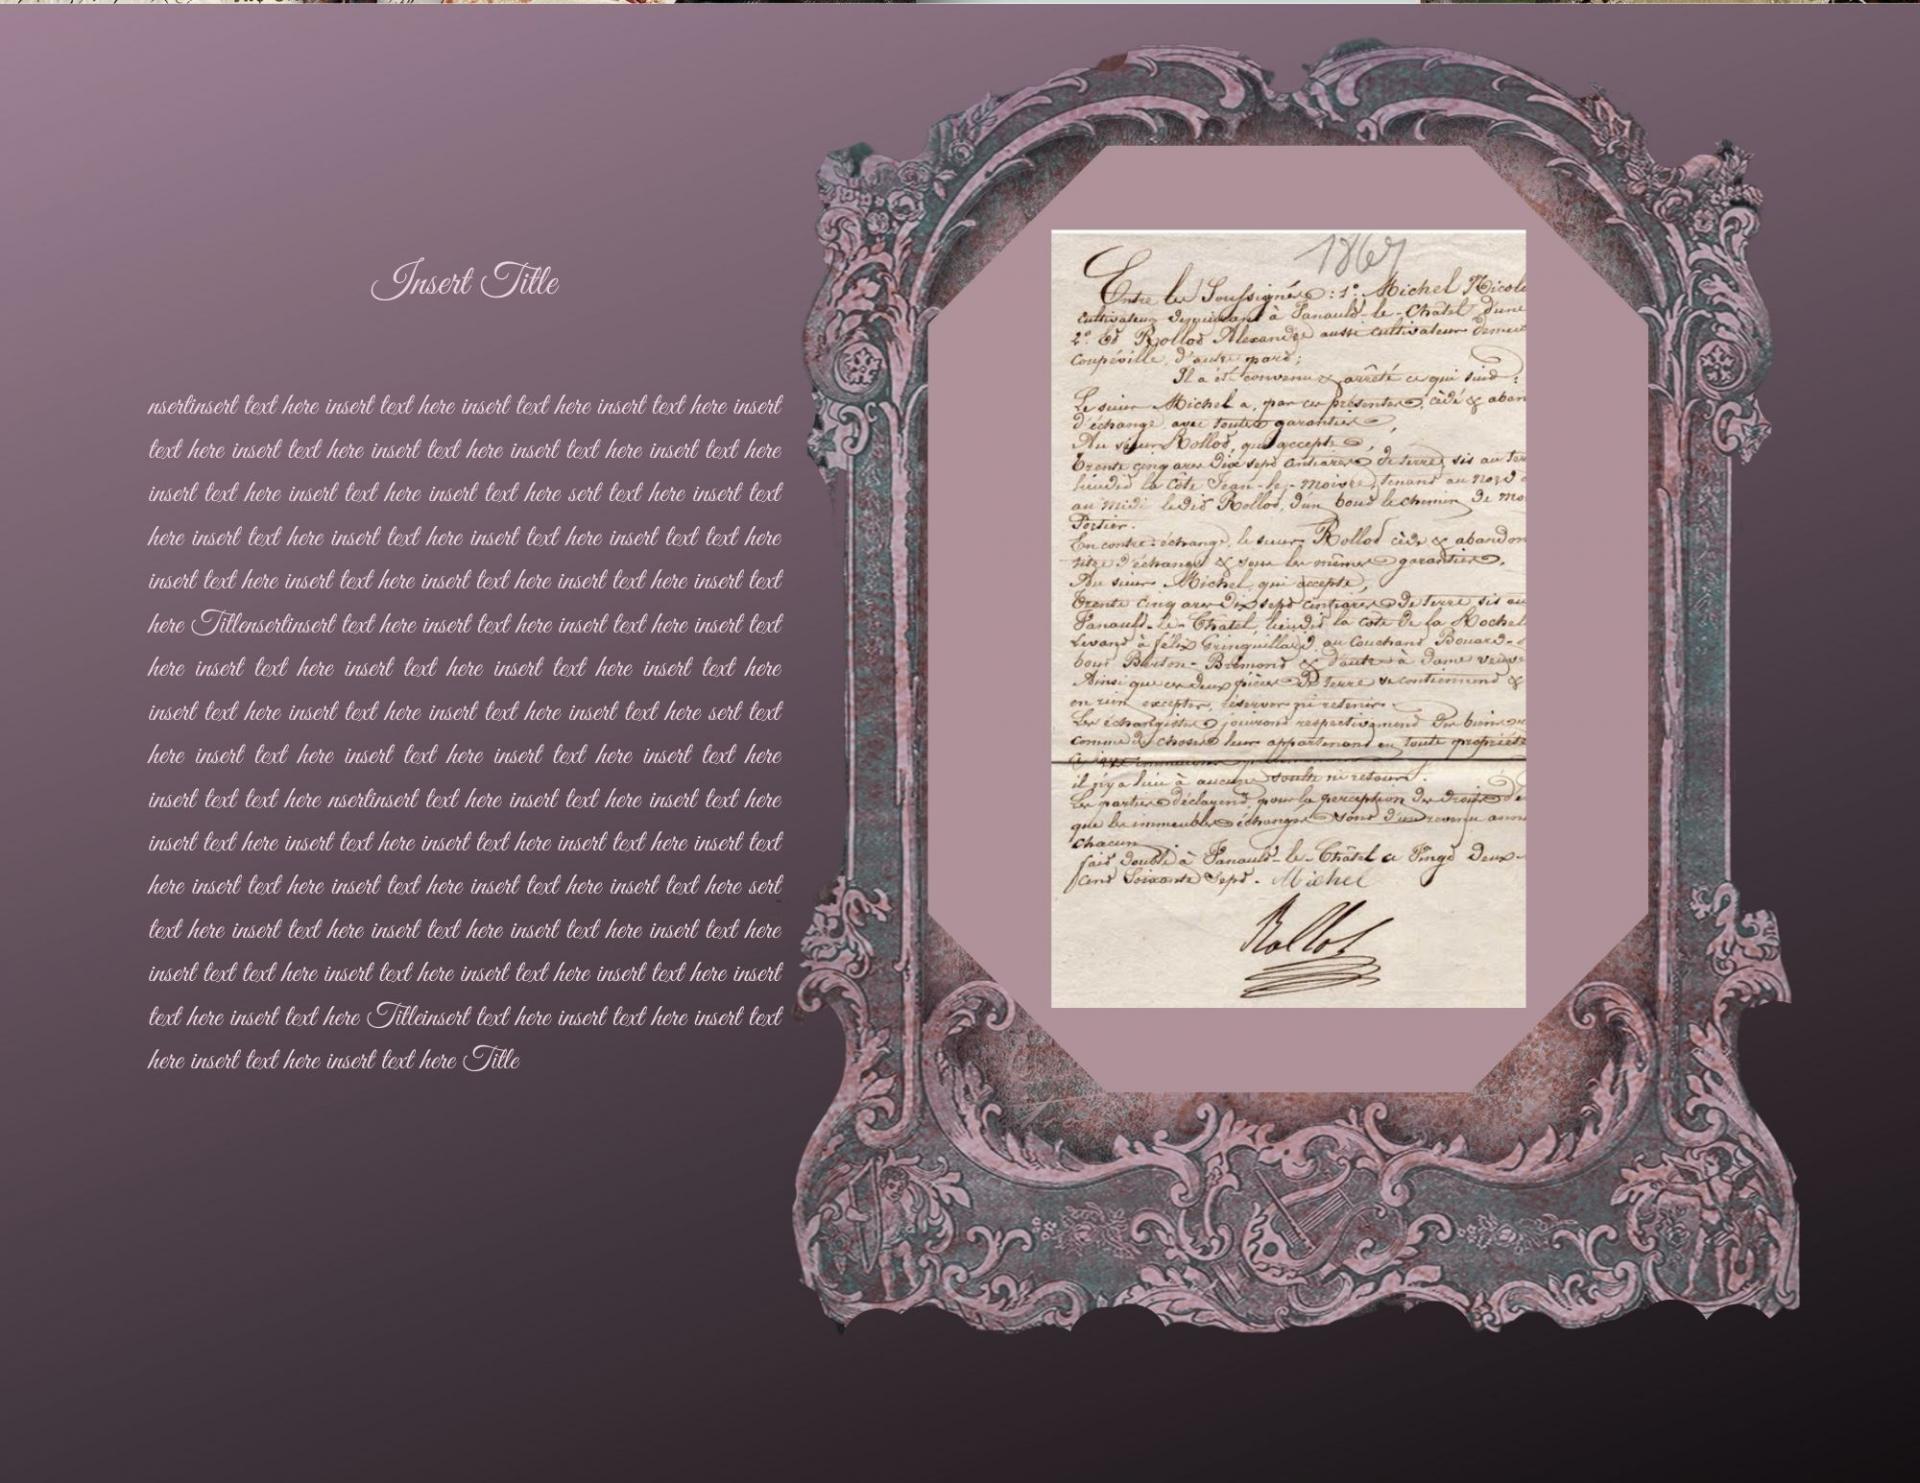 Insert Title
nsertinsert text here insert text here insert text here insert text here insert
text here insert text here insert text here insert text here insert text here
insert text here insert text here insert text here sert text here insert text
here insert text here insert text here insert text here insert text text here
insert text here insert text here insert text here insert text here insert text
here Titlensertinsert text here insert text here insert text here insert text
here insert text here insert text here insert text here insert text here
insert text here insert text here insert text here insert text here sert text
here insert text here insert text here insert text here insert text here
insert text text here nsertinsert text here insert text here insert text here
insert text here insert text here insert text here insert text here insert text
here insert text here insert text here insert text here insert text here sert
text here insert text here insert text here insert text here insert text here
insert text text here insert text here insert text here insert text here insert
text here insert text here Titleinsert text here insert text here insert text
here insert text here insert text here Title
1867
Entre les Soussignés : 1° Michel Nicola
cultivateur demeurant à Vanault-le-Châtel d'une
2° Et Rollot Alexandre aussi cultivateur demeu
Coupéville, d'autre part;
Il a été convenu & arrêté ce qui suit :
Le sieur Michel a, par ces présentes, cédé & aban
d'échange avec toutes garanties,
Au sieur Rollot, qui accepte,
Trente cinq ares dix sept centiares de terre, sis au ter
lieudit la côte Jean-le-moivre, tenant au nord
au midi ledit Rollot, d'un bout le chemin de
En contre-échange, le sieur Rollot cède & abandon
titre d'échange & sous les mêmes garanties,
Au sieur Michel, qui accepte,
Trente cinq ares dix sept centiares de terre sis au
Vanault-le-Châtel, lieudit la côte de la Rochel
Levant à félix au Couchant
bout & d'autre à dame veuve
Ainsi que ces deux pièces de terre se contiennent &
en rien excepter, réserver ni retenir.
Les échangistes jouiront respectivement des biens
comme de choses leur appartenant en toute propriété
il n'y a lieu à aucune soulte ni retour.
Les parties déclarent, pour la perception des droits
que les immeubles échangés sont d'un revenu ann
chacun
fait double à Vanault-le-Châtel ce Vingt deux
cent Soixante Sept. Michel
Rollot